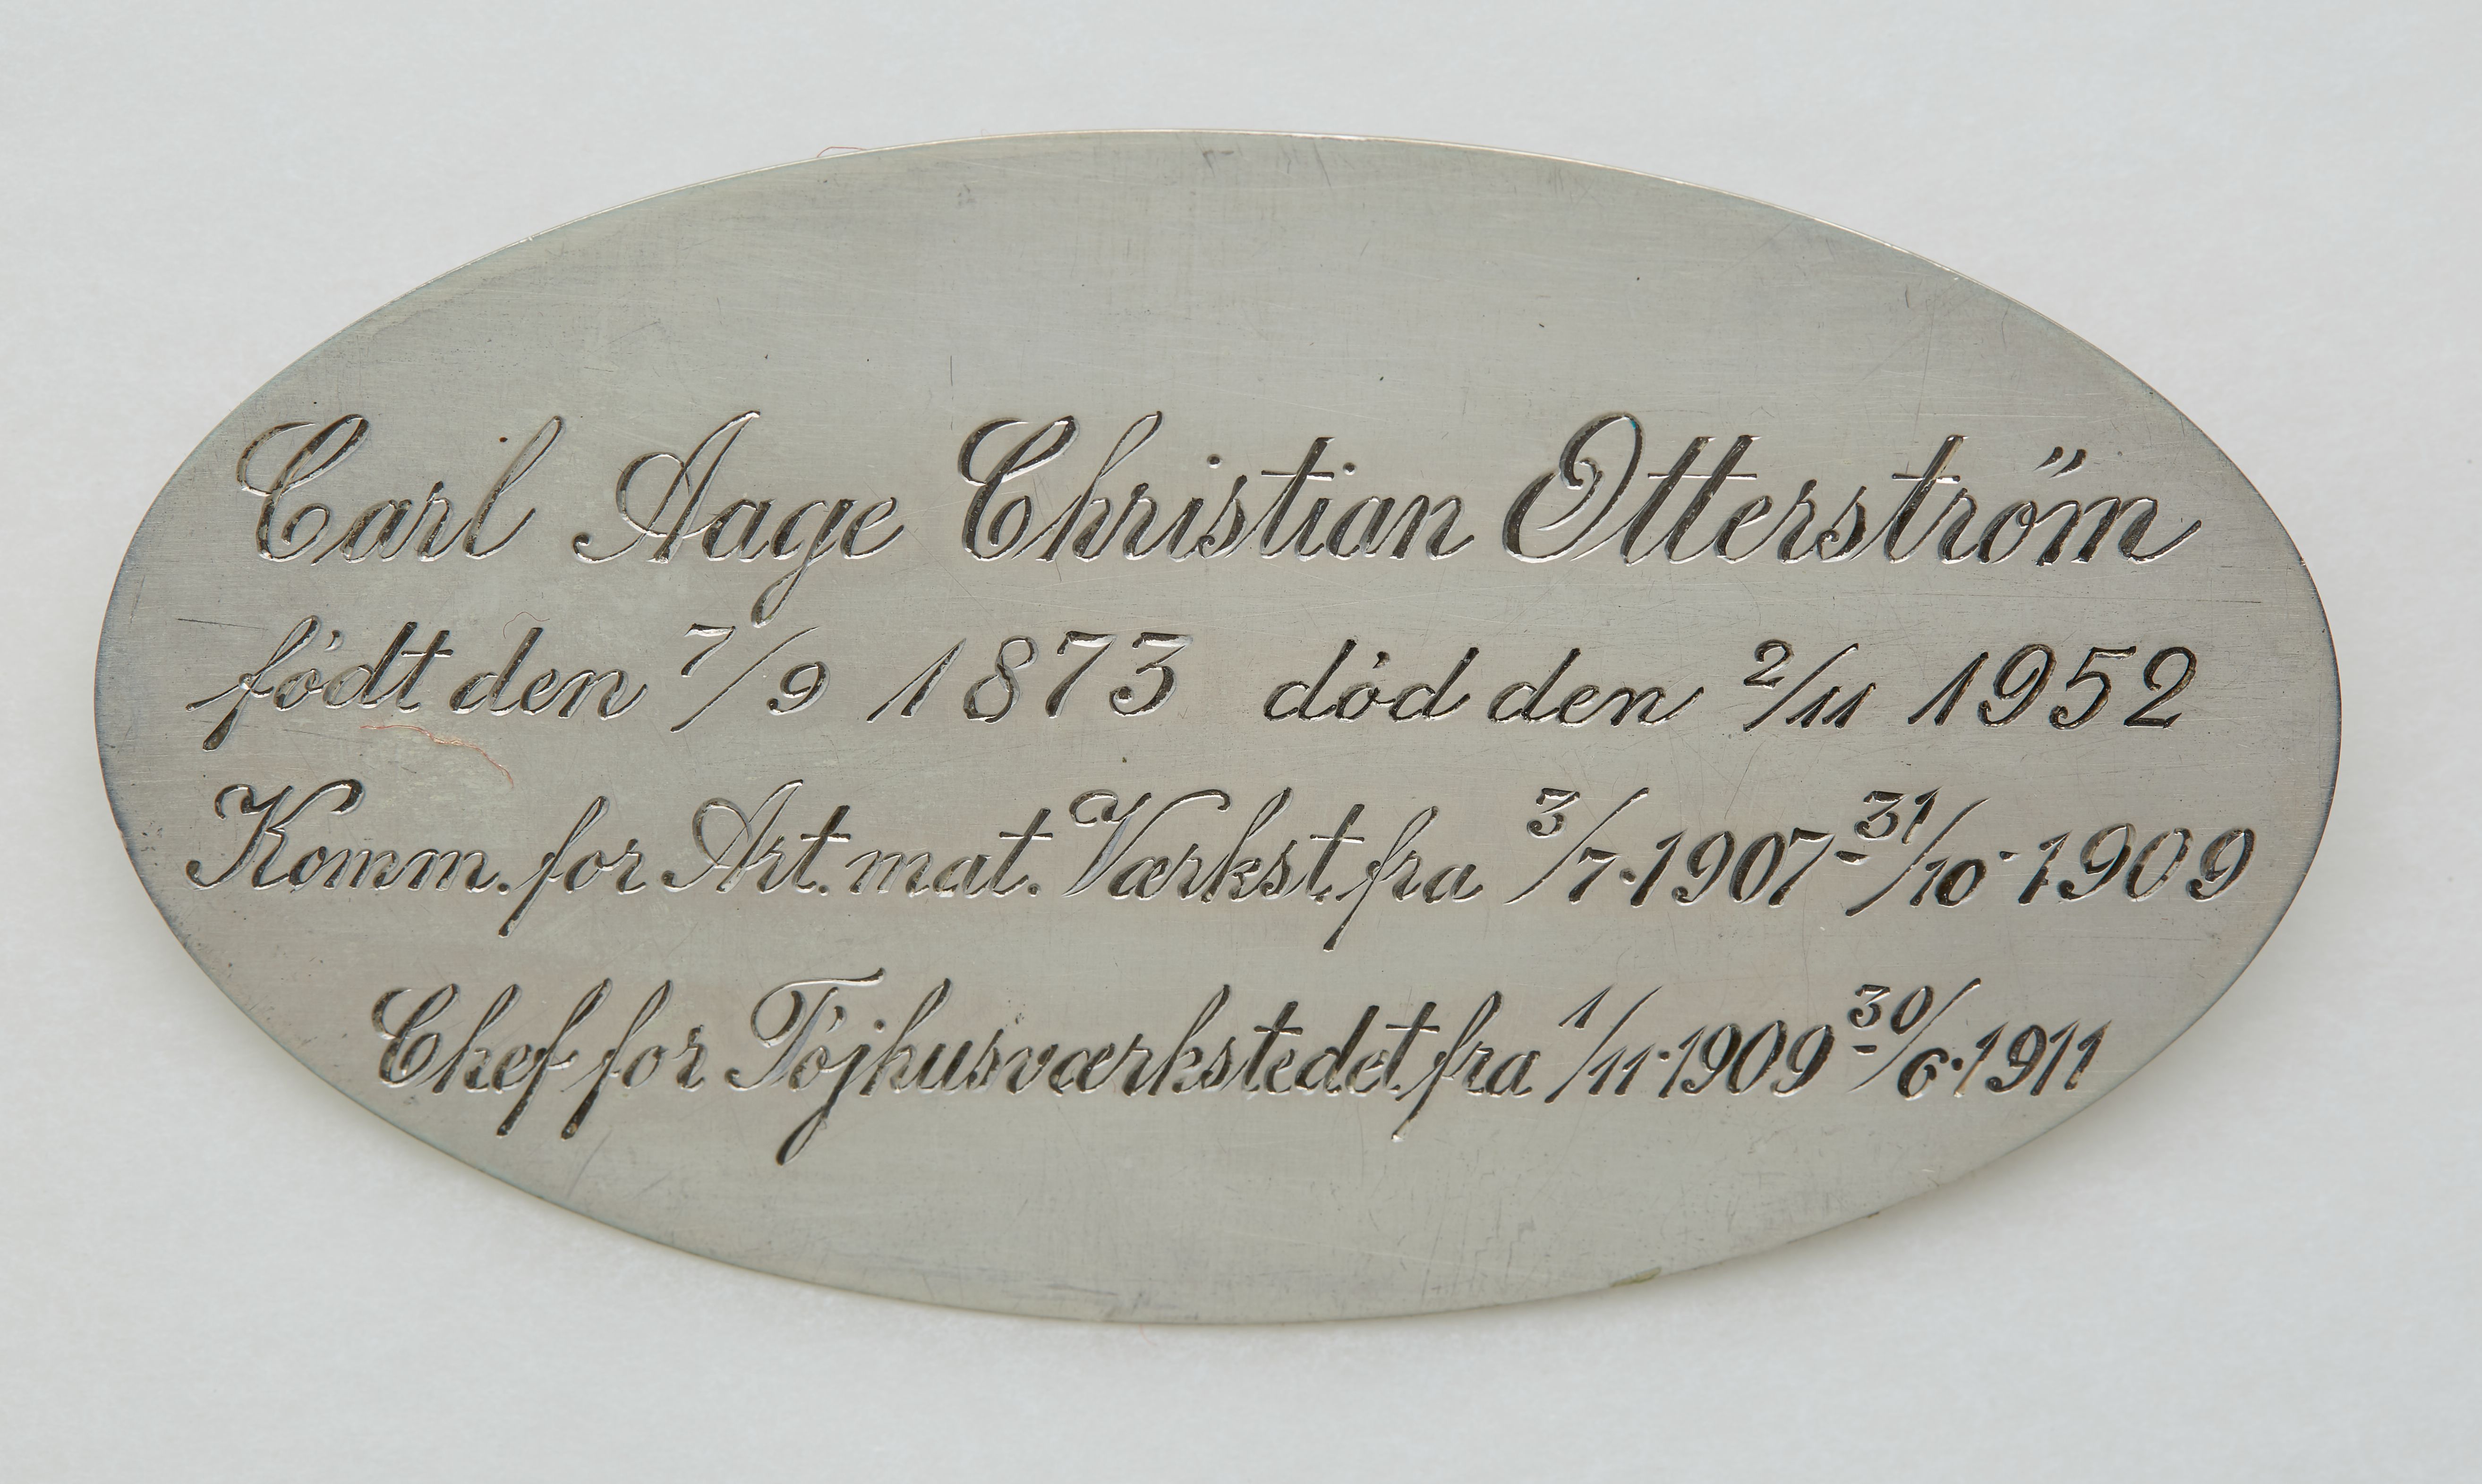 Carl Aage Christian Otterström
født den 7/9 1873 død den 2/11 1952
Komm. for Art. mat. Værkst. fra 3/7·1907-31/10·1909
Chef for Töjhusværkstedet fra 1/11·1909-30/6·1911